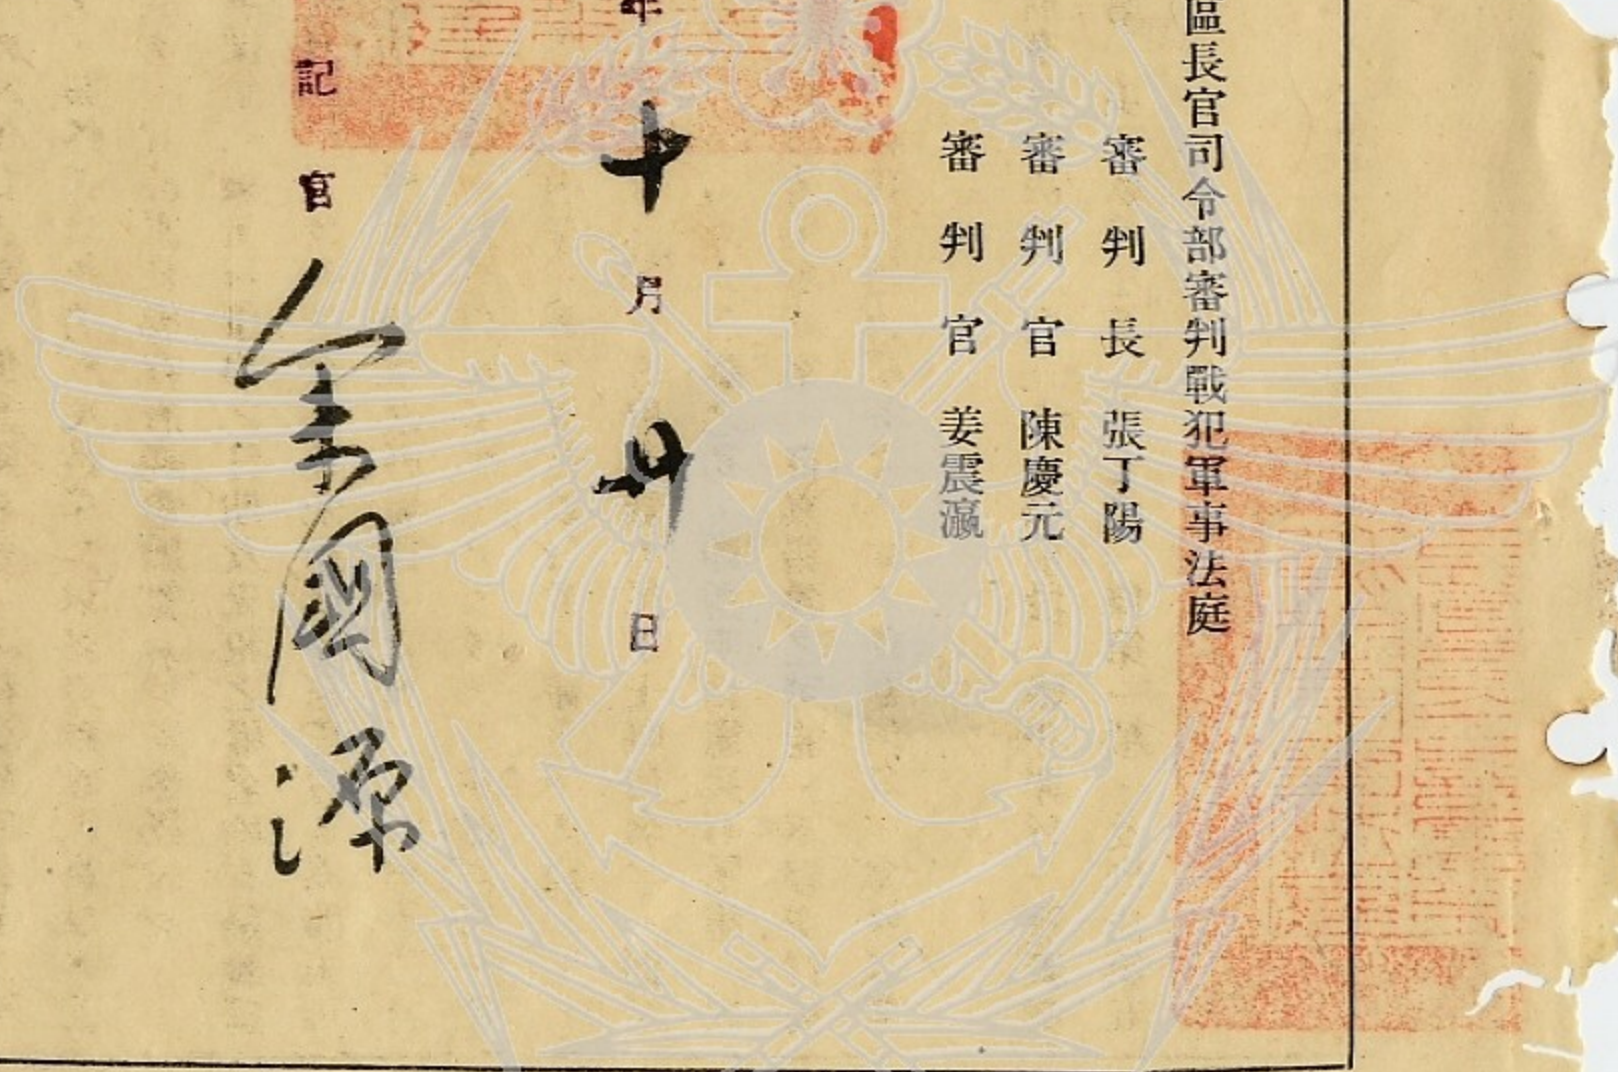 區長官司令部審判戰犯軍事法庭
審判長 張丁陽
審判官 陳慶元
審判官 姜震瀛
年十月廿日
記官 余國源